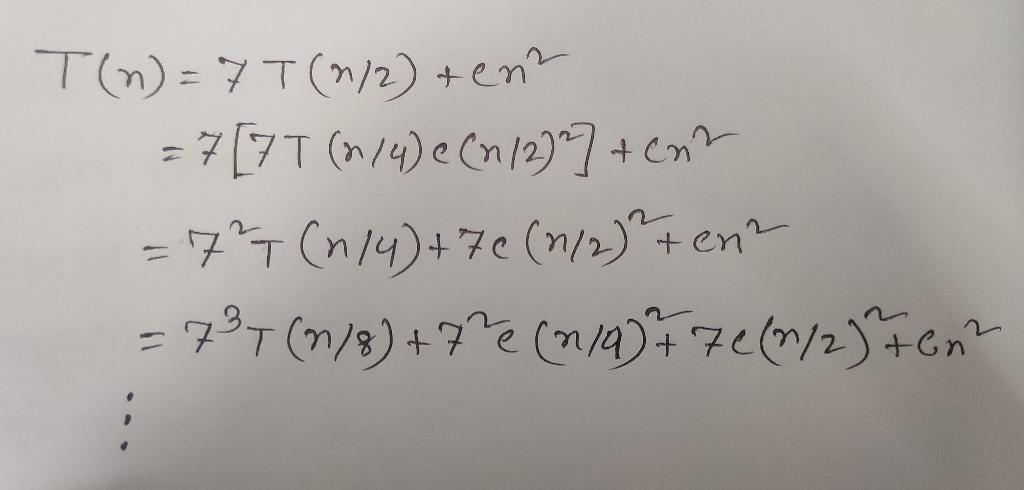 T(n) = 7 T(n/2) + cn²
= 7[7T (n/4) c (n/2)²] + cn²
= 7²T (n/4) + 7c (n/2)² + cn²
= 7³T (n/8) + 7²c (n/4)² + 7c(n/2)² + cn²
⋮